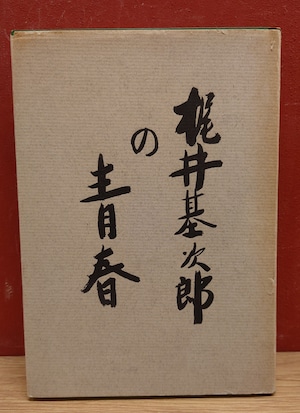 梶井基次郎
の
青春